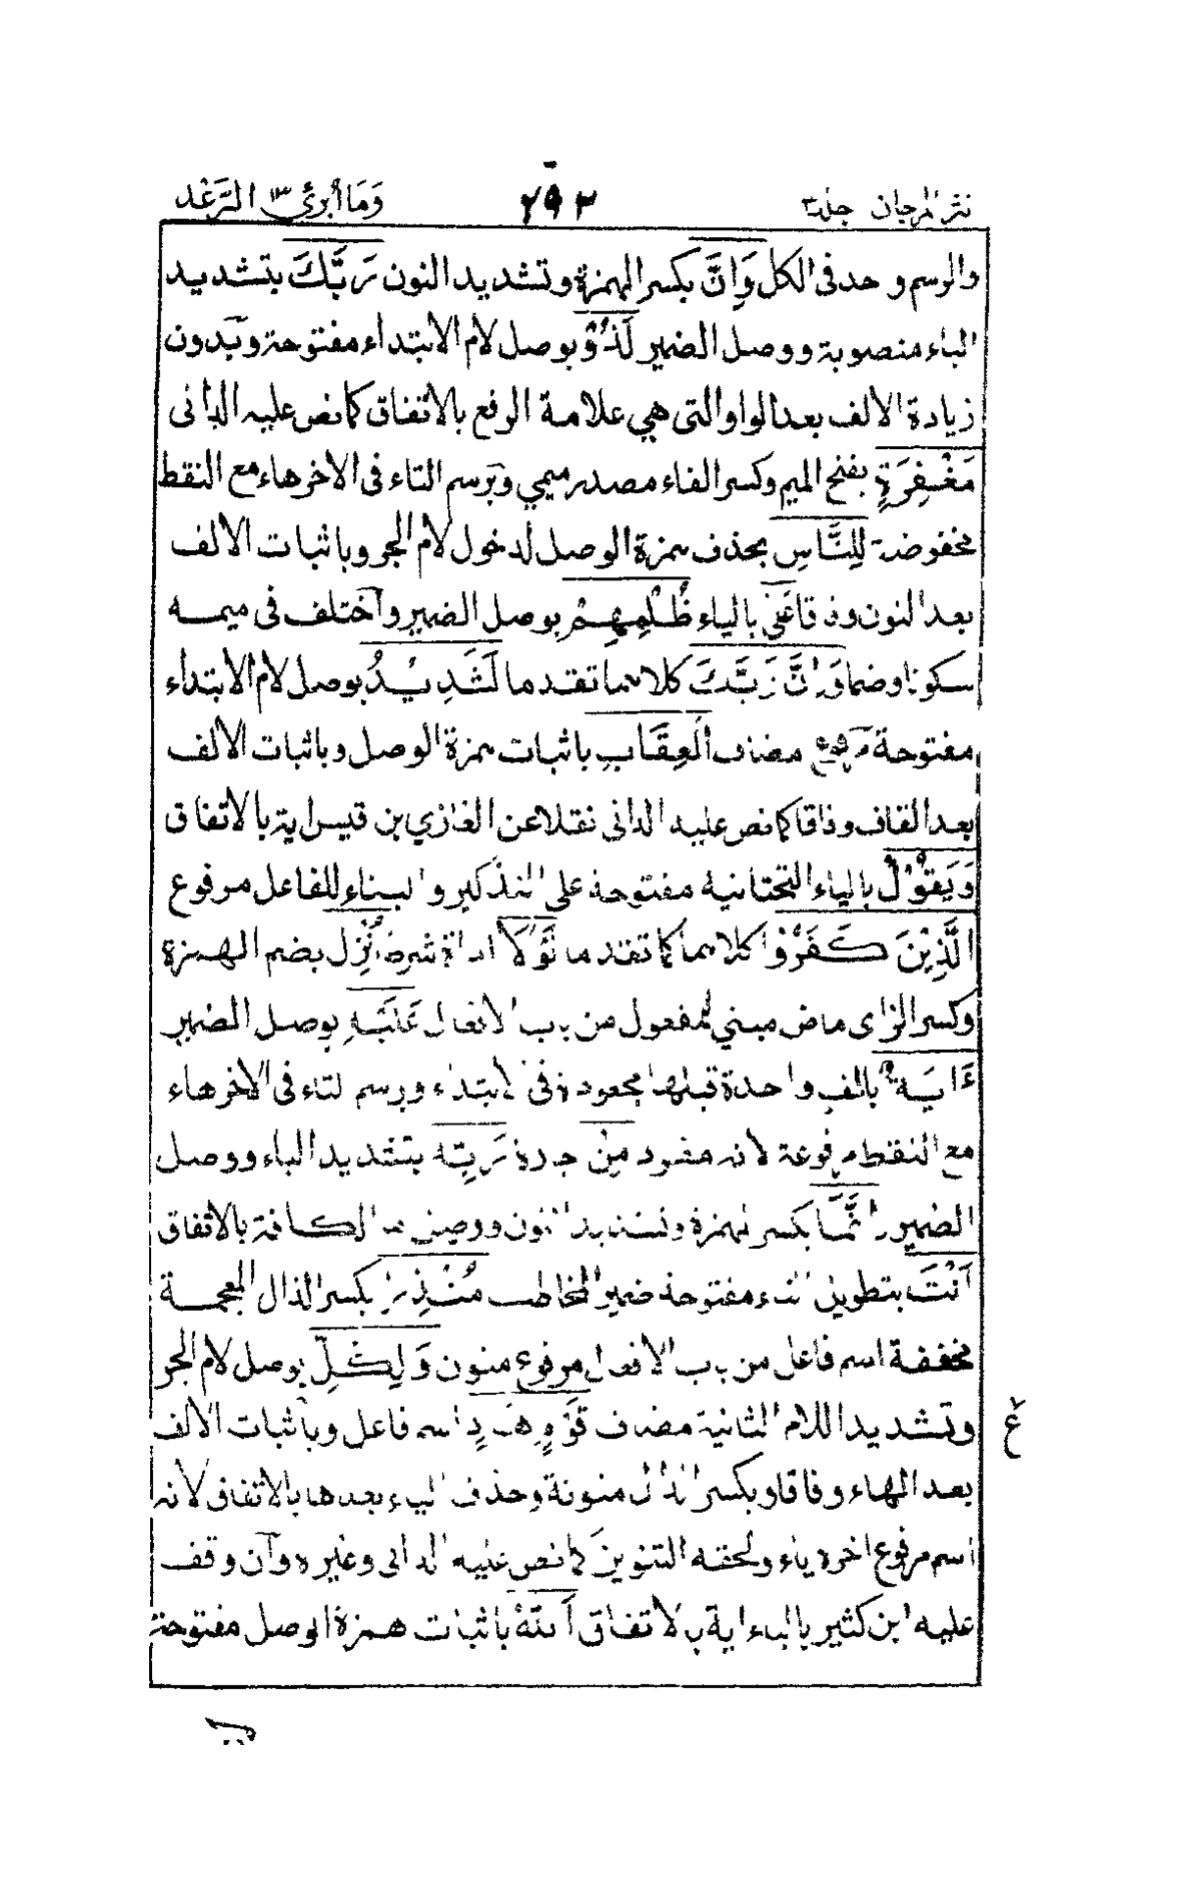 نثر المرجان جلد٣ ٢٩٢ وَمَا أُبَرِّئُ ١٣ الرَّعْد
والرسم واحد فى الكل وَاِنَّ بكسر الهمزة وتشديد النون رَبَّكَ بتشديد
الباء منصوبة ووصل الضمير لَذُوْ بوصل لام الابتداء مفتوحة وبدون
زيادة الالف بعد الواو التى هي علامة الرفع بالاتفاق كما نص عليه الدانى
مَغْفِرَةٍ بفتح الميم وكسر الفاء مصدر ميمي وبرسم التاء فى الاخر هاء مع النقط
مخفوضة لِلنَّاسِ بحذف همزة الوصل لدخول لام الجر وباثبات الالف
بعد النون وفاقا عَلٰى بالياء ظُلْمِهِمْ بوصل الضمير واختلف فى ميمه
سكونا وضما وَاِنَّ رَبَّكَ كلاهما تقدما لَشَدِيْدُ بوصل لام الابتداء
مفتوحة مرفوع مضاف الْعِقَابِ باثبات همزة الوصل وباثبات الالف
بعد القاف وفاقا كما نص عليه الدانى نقلا عن الغازي بن قيس اية بالاتفاق
وَيَقُوْلُ بالياء التحتانية مفتوحة على التذكير والبناء للفاعل مرفوع
الَّذِيْنَ كَفَرُوْا كلاهما كما تقدما لَوْلَا اداة شرط اُنْزِلَ بضم الهمزة
وكسر الزاى ماض مبني للمفعول من باب الافعال عَلَيْهِ بوصل الضمير
ءَايَةٌ بالف واحدة قبلها مجعودة فى الابتداء وبرسم التاء فى الاخر هاء
مع النقط مرفوعة لانه مفرد مِنْ جارة رَبِّهٖ بتشديد الباء ووصل
الضمير اِنَّمَا بكسر الهمزة وتشديد النون ووصل ما الكافة بالاتفاق
اَنْتَ بتطويل التاء مفتوحة ضمير المخاطب مُنْذِرٌ بكسر الذال المعجمة
مخففة اسم فاعل من باب الافعال مرفوع منون وَلِكُلِّ بوصل لام الجر
وتشديد اللام الثانية مضاف قَوْمٍ هَادٍ اسم فاعل وباثبات الالف
ع
بعد الهاء وفاقا وبكسر الدال منونة وحذف الياء بعدها بالاتفاق لانه
اسم مرفوع اخره ياء ولحقه التنوين كما نص عليه الدانى وغيره وان وقف
عليه ابن كثير بالياء اية بالاتفاق اَللهُ باثبات همزة الوصل مفتوحة